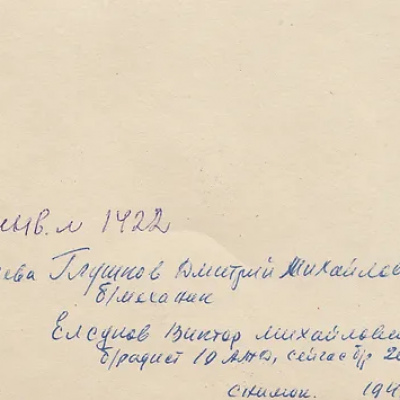 инв. № 1422
ева Глушков Дмитрий Михайлов
б/механик
Елсуков Виктор Михайлови
б/радист 10 АЖД, сейчас б/р 20
снимок. 194